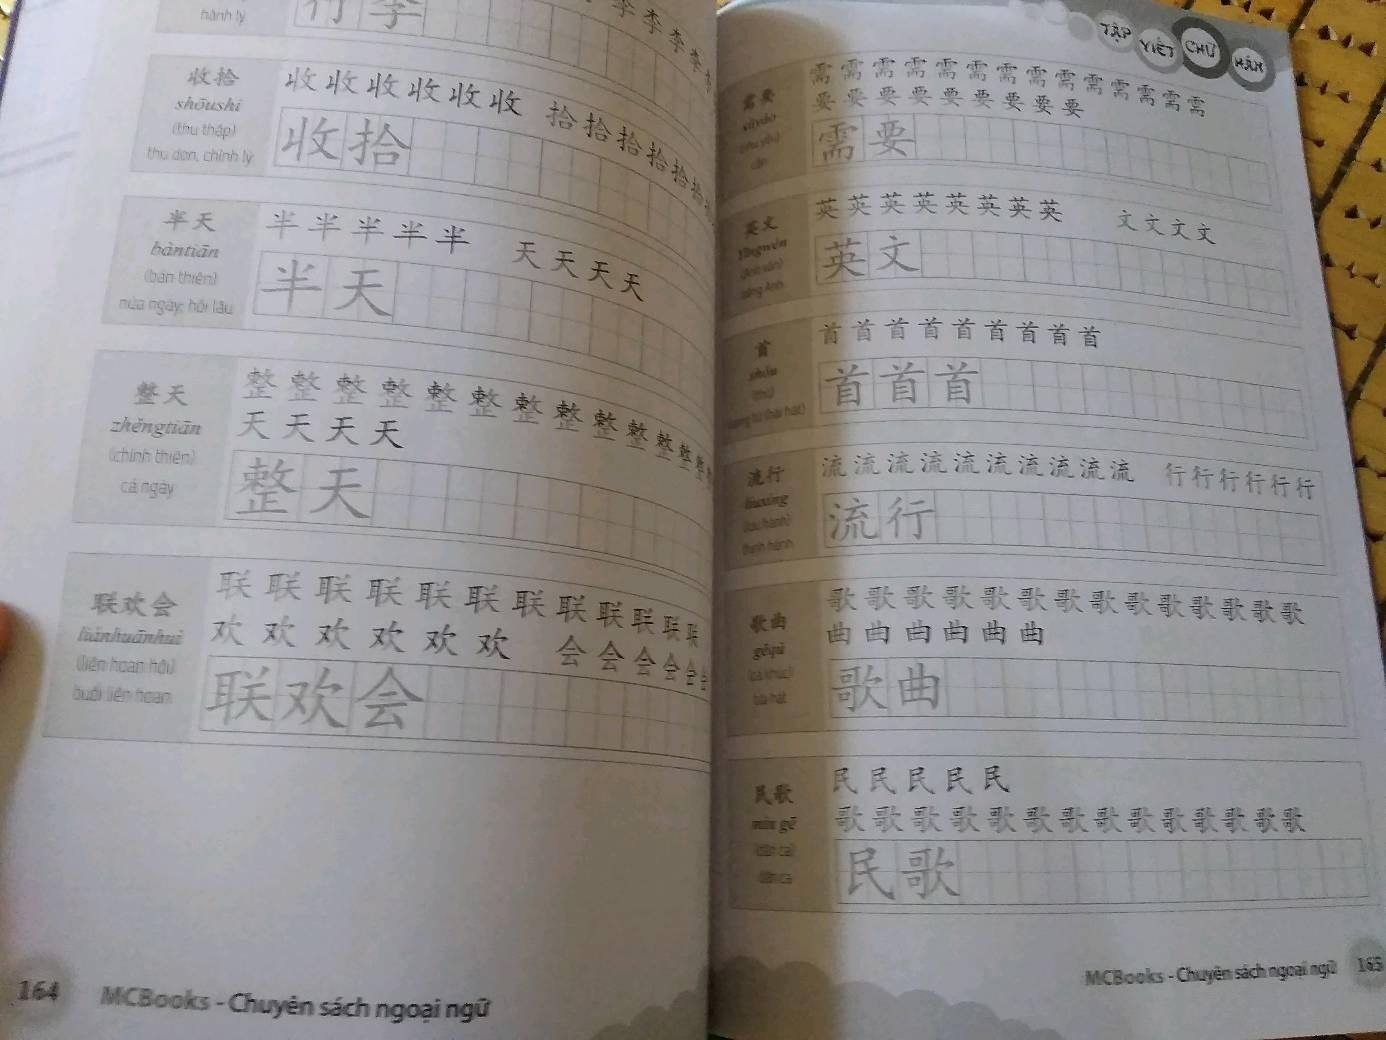 hành lý
李 李 李 李 李
行 李
收拾
shōushi
(thu thập)
thu dọn, chỉnh lý
收 收 收 收 收 收 拾 拾 拾 拾 拾 拾
收 拾
半天
bàntiān
(bán thiên)
nửa ngày; hồi lâu
半 半 半 半 半 天 天 天 天
半 天
整天
zhěngtiān
(chỉnh thiên)
cả ngày
整 整 整 整 整 整 整 整 整 整 整 整 整
天 天 天 天
整 天
联欢会
liánhuānhuì
(liên hoan hội)
buổi liên hoan
联 联 联 联 联 联 联 联 联 联 联 联
欢 欢 欢 欢 欢 欢 会 会 会 会 会 会
联 欢 会
164 MCBooks - Chuyên sách ngoại ngữ
TẬP VIẾT CHỮ HÁN
需要
xūyào
(nhu yếu)
cần
需 需 需 需 需 需 需 需 需 需 需 需 需 需
要 要 要 要 要 要 要 要 要
需 要
英文
Yīngwén
(Anh văn)
tiếng Anh
英 英 英 英 英 英 英 英 文 文 文 文
英 文
首
shǒu
(thủ)
lượng từ (bài hát)
首 首 首 首 首 首 首 首 首
首 首 首
流行
liúxíng
(lưu hành)
thịnh hành
流 流 流 流 流 流 流 流 流 流 行 行 行 行 行 行
流 行
歌曲
gēqǔ
(ca khúc)
bài hát
歌 歌 歌 歌 歌 歌 歌 歌 歌 歌 歌 歌 歌 歌
曲 曲 曲 曲 曲 曲
歌 曲
民歌
mín gē
(dân ca)
dân ca
民 民 民 民 民
歌 歌 歌 歌 歌 歌 歌 歌 歌 歌 歌 歌 歌 歌
民 歌
MCBooks - Chuyên sách ngoại ngữ 165